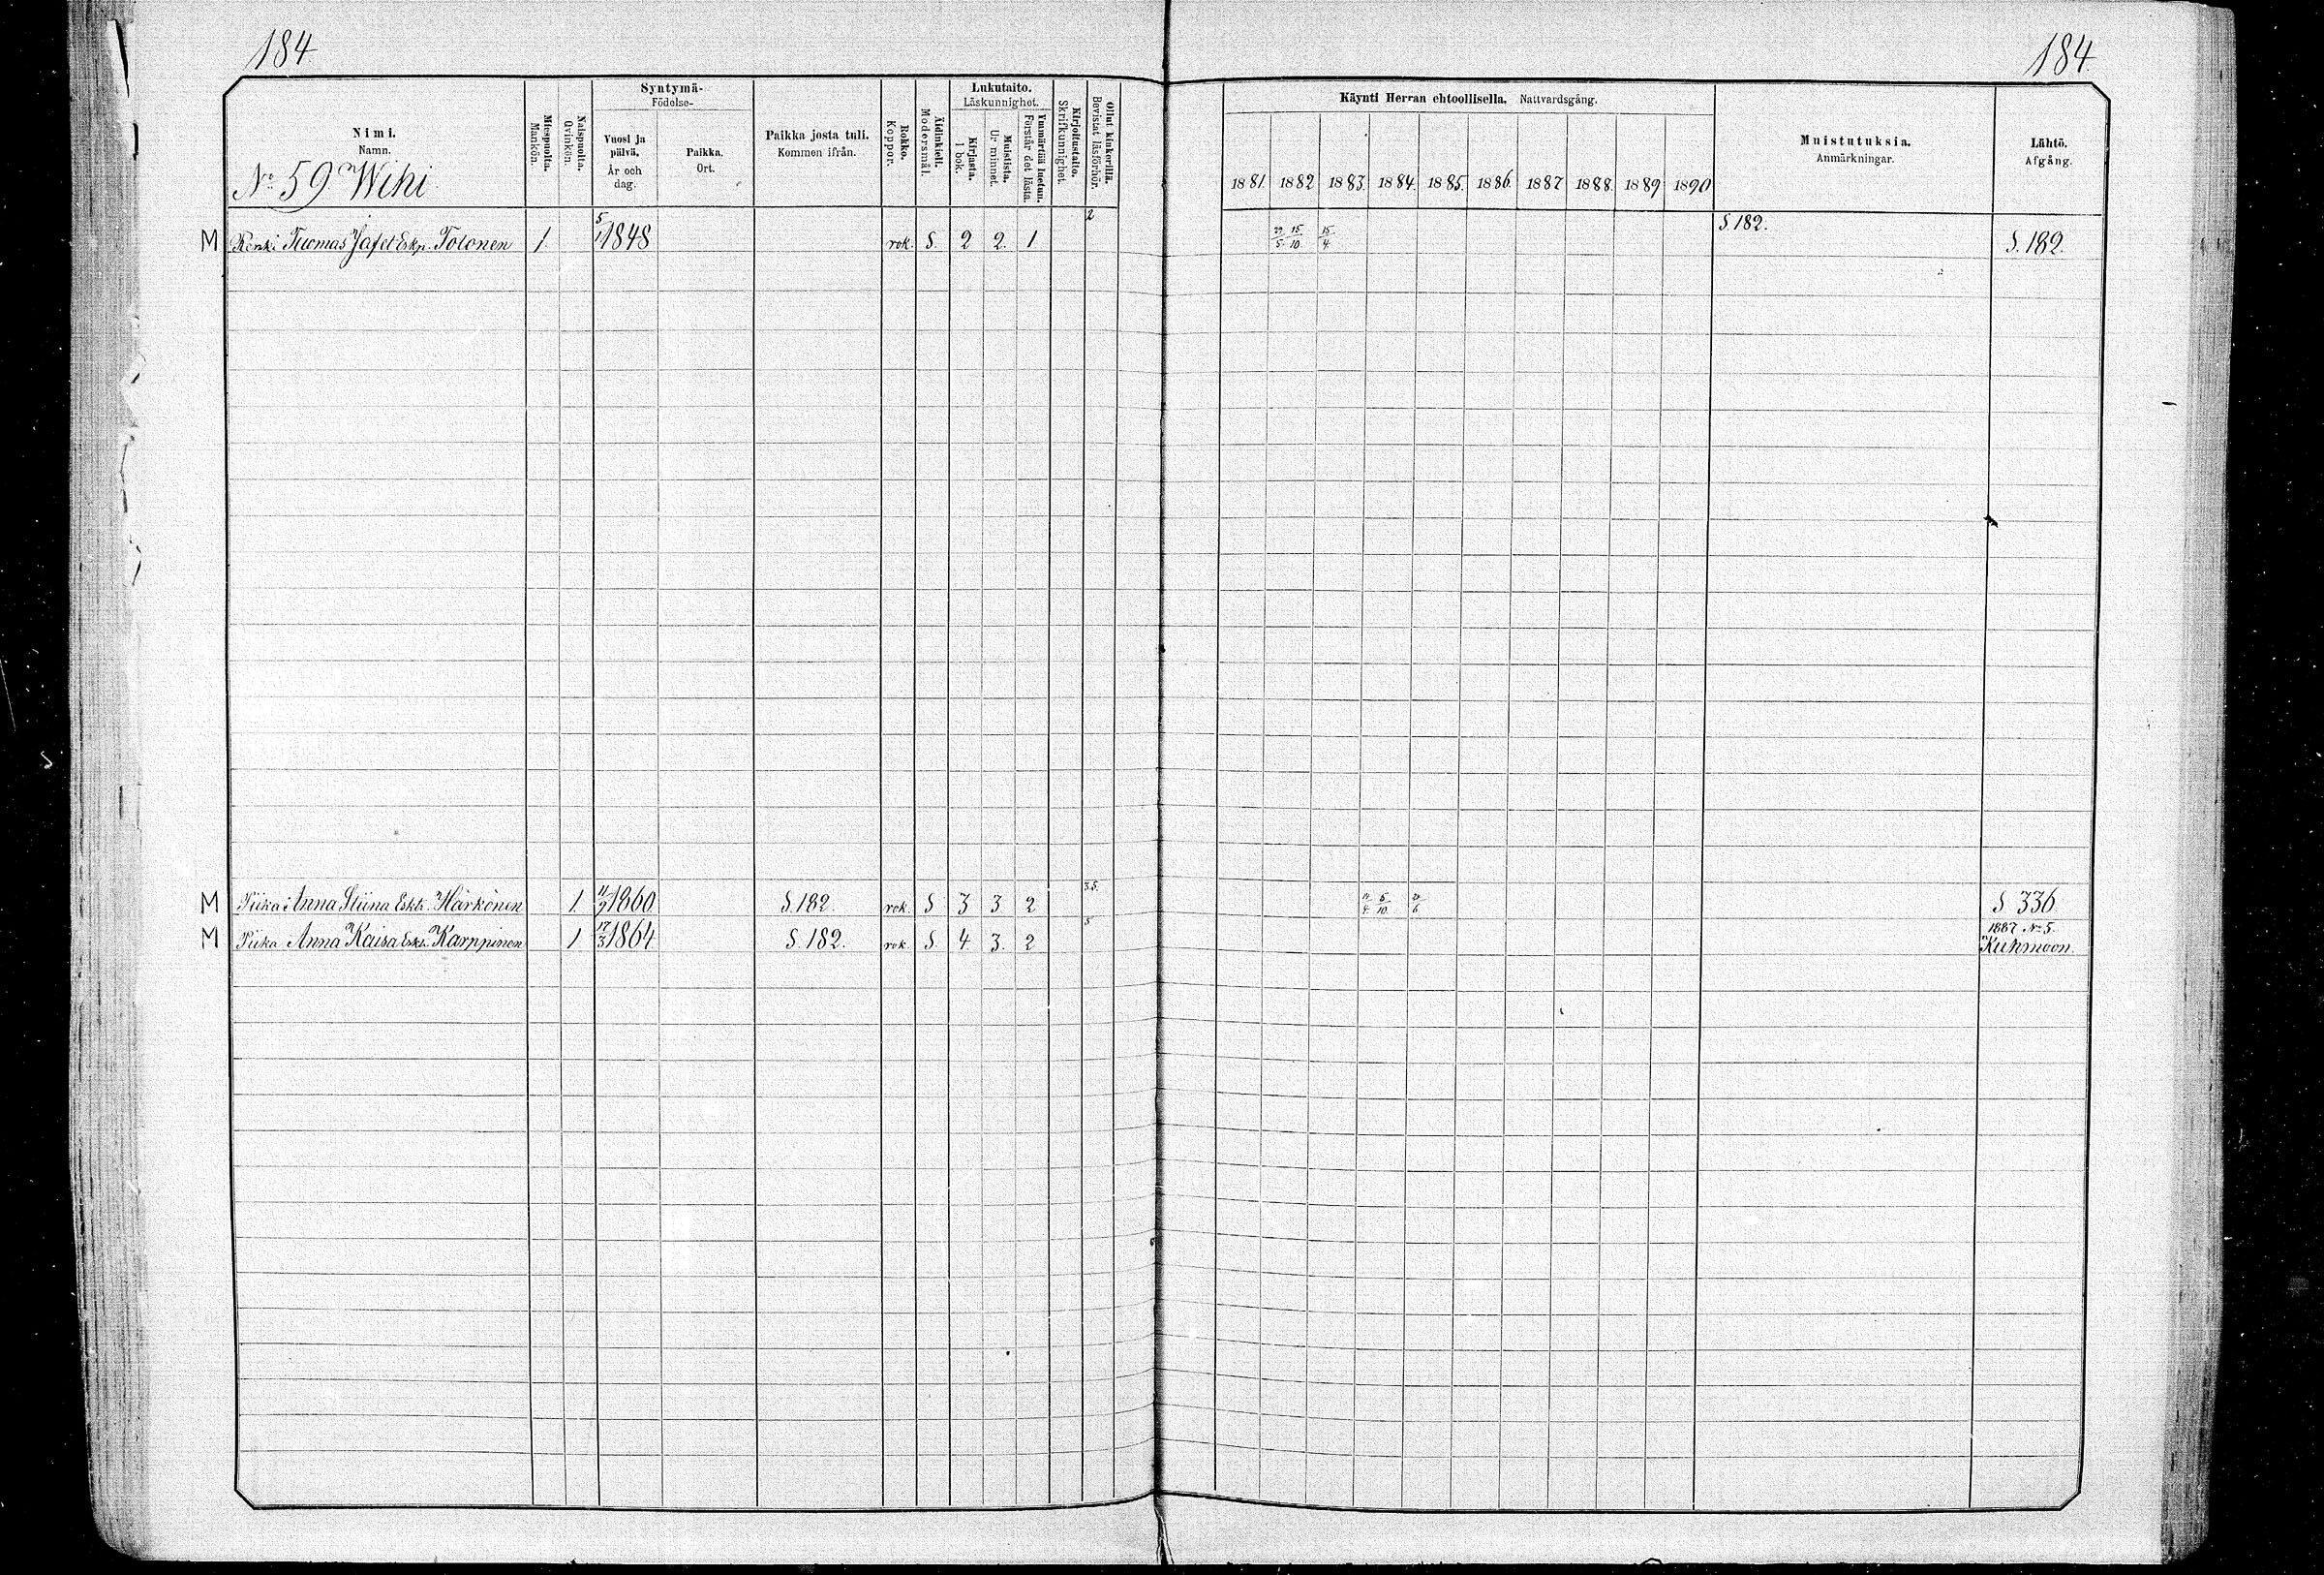 184.
184.
Nimi.
Namn.
Miespuolta.
Mankön.
Naispuolta.
Qvinkön.
Syntymä-
Födelse-
Vuosi ja päivä.
År och dag.
Paikka.
Ort.
Paikka josta tuli.
Kommen ifrån.
Rokko.
Koppor.
Äidinkieli.
Modersmål.
Lukutaito.
Läskunnighet.
Kirjasta.
I bok.
Muistista.
Ur minnet.
Ymmärtää luetun.
Förstår det lästa.
Kirjoitustaito.
Skrifkunnighet.
Ollut kinkerillä.
Bevistat läsförhör.
Käynti Herran ehtoollisella. Nattvardsgång.
1881. 1882 1883. 1884. 1885. 1886. 1887 1888. 1889 1890
Muistutuksia.
Anmärkningar.
Lähtö.
Afgång.
No 59 Wihi
M Renki Tuomas Jafet Eskp. Tolonen 1. 5/1 1848 rok. S. 2 2. 1. 2 29/5 15/10 15/4 S.182. S.182.
M Piika Anna Stiina Eskt. Härkönen 1. 1860 S.182. rok. S 3 3 2 3.5. 5/10 S 336
M Piika Anna Kaisa Eskt. Karppinen 1 17/3 1864 S.182. rok. S. 4. 3. 2 5 1887 No 5.
Kuhmoon.